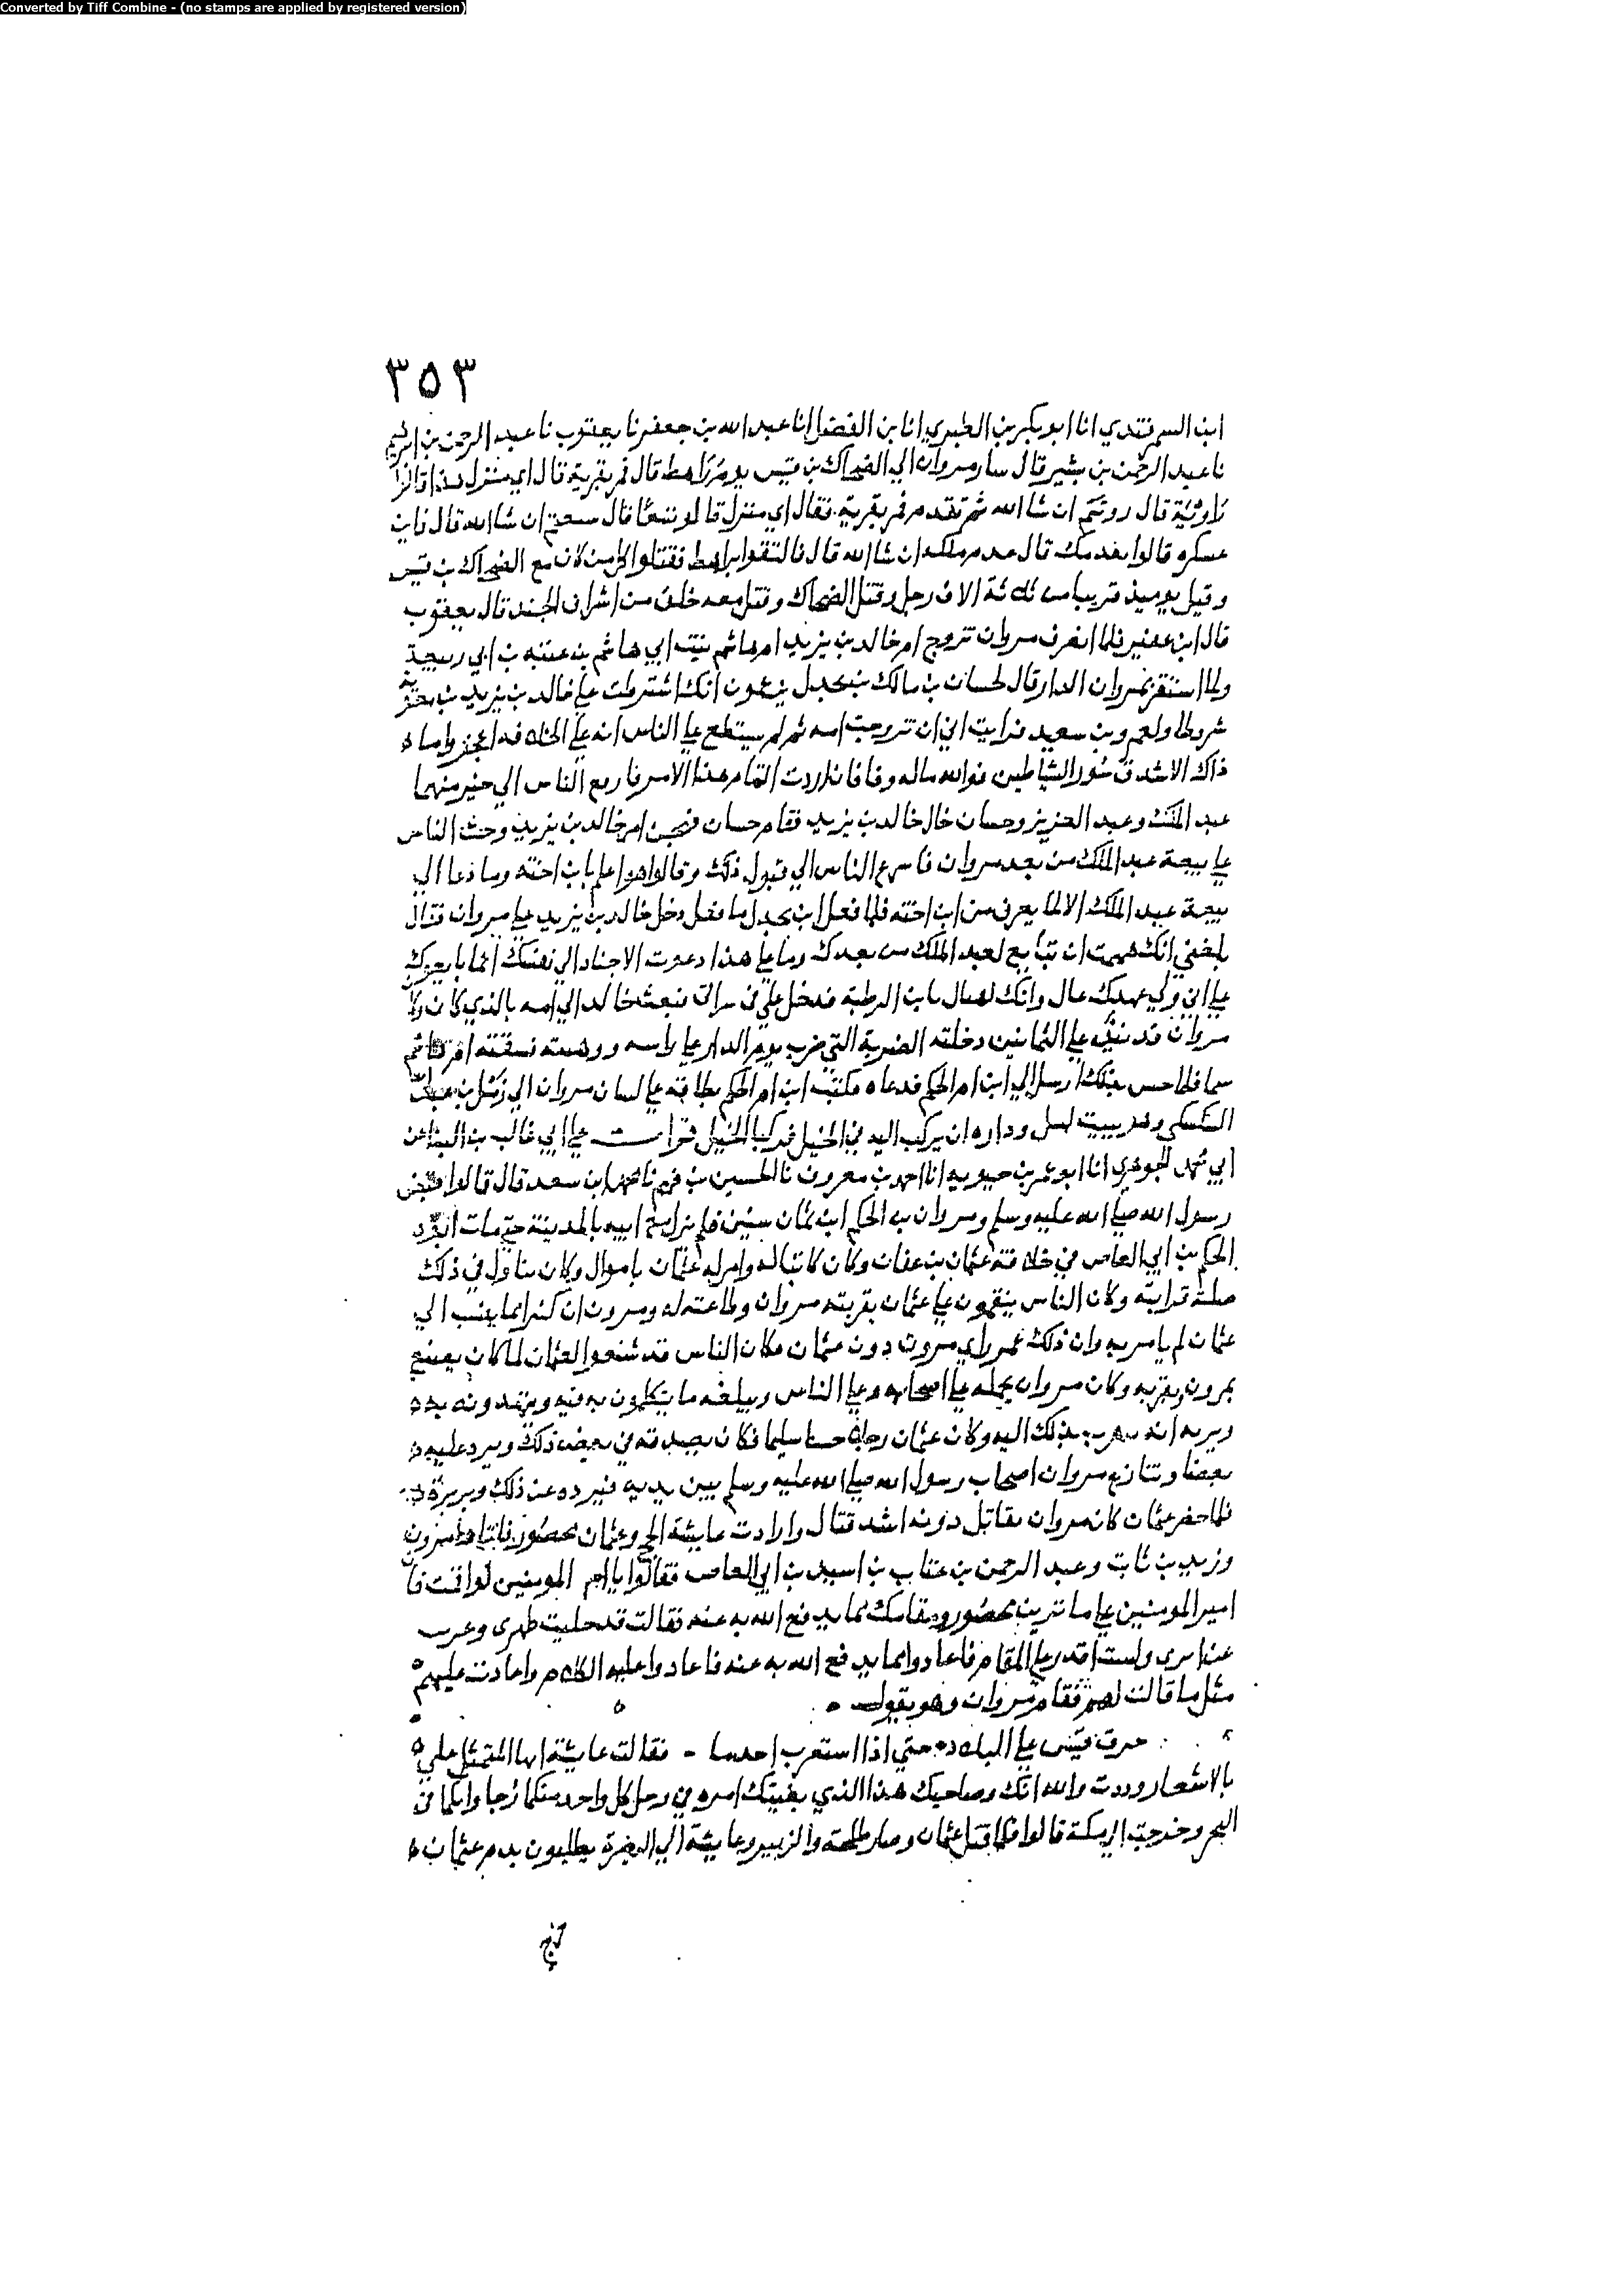 Converted by Tiff Combine - (no stamps are applied by registered version)
٣٥٣
ابن السمرقندي انا ابو بكر بن الطبري انا بن الفضل انا عبد الله بن جعفر نا يعقوب نا عبد الرحمن بن ابرهيم
نا عبد الرحمن بن بشير قال سار مروان الي الضحاك بن قيس يوم مرج راهط قال فمر بقرية قال اي منزل هذا قالوا
زاوية قال رويتم ان شا الله ثم تقدم فمر بقرية فقال اي منزل قالوا شبعا قال سبعتم ان شا الله قال فاين
عسكره قالوا بقدمك قال ان شا الله قال فالتقوا براهط فقتلوا كل من كان مع الضحاك بن قيس
وقيل يوميذ قريبا من ثلاثة الاف رجل وقتل الضحاك وقتل معه خلق من اشراف الجند قال يعقوب
قال ابن عفير فلما انصرف مروان تزوج ام خالد بن يزيد ام هاشم بنت ابي هاشم بن عتبة بن ابي ربيعة
ولما استقر بمروان الدار قال لحسان بن مالك بن بحدل يزعمون انك اشترطت علي لخالد بن يزيد بن معوية
شروطا ولعمرو بن سعيد فرايت اني ان تزوجت امه ثم لم يستطع علي الناس انه علي الخلافه اعجز واما
ذاك الاشدق الشياطين فوالله ماله وفا فاذا اردت القيام بهذا الامر فادع الناس الي خير منهما
عبد الملك وعبد العزيز وحسان خال خالد بن يزيد فقام حسان ام خالد بن يزيد وحث الناس
علي بيعة عبد الملك من بعد مروان فاسرع الناس الي قبول ذلك وقالوا هو اعلم بابن اخته وما دعا الي
بيعة عبد الملك الا لما يعرف من ابن اخته فلما فعل ابن بحدل ما فعل دخل خالد بن يزيد علي مروان فقال
بلغني انك هممت ان تبايع لعبد الملك من بعدك وما علي هذا دعوت الاجناد الي نفسك انما بايعوك
علي اني ولي عهدك قال وانك لهناك يا بن الرطبة فدخل علي في فبعث خالد الي امه بالذي كان وكان
مروان قد نيف علي الثمانين دخلته الضربة التي ضرب يوم الدار علي راسه فسقته ام هاشم
سما فلما حس بذلك ارسل الي ابن ام الحكم فدعاه فكتب ابن ام الحكم بطاقة علي لسان مروان الي زمل بن عبد
السكسكي وداره ان يركب اليه في الخيل فركب الخيل قرات علي ابي غالب بن البنا عن
ابي محمد الجوهري انا ابو عمر بن حيويه انا احمد بن معروف نا الحسين بن فهم نا محمد بن سعد قال قالوا قبض
رسول الله صلي الله عليه وسلم ومروان بن الحكم ابن ثمان سنين فلم يزل مع ابيه بالمدينة حتي مات ابوه
الحكم بن ابي العاص في خلافة عثمان بن عفان وكان كاتبا له وامر له عثمان باموال وكان يتاول في ذلك
صلة قرابته وكان الناس ينقمون علي عثمان بقربته مروان وطاعته له ويرون ان كثيرا مما ينسب الي
عثمان لم يامر به وان ذلك عن راي مروان دون عثمان فكان الناس قد شنعوا لعثمان لما كان يصنع
بمروان ويقربه وكان مروان يحمله علي اصحابه وعلي الناس ويبلغه ما يتكلمون به فيه ويهددونه به
ويريه انه يتقرب بذلك اليه وكان عثمان رجلا سليما فكان يصدقه في بعض ذلك ويرد عليه
بعضا وتنازع مروان اصحاب رسول الله صلي الله عليه وسلم بين يديه فيرده عن ذلك ويزبره
فلما حصر عثمان كان مروان يقاتل دونه اشد قتال وارادت عايشة الحج وعثمان محصور فاتاها مروان
وزيد بن ثابت وعبد الرحمن بن عتاب بن اسيد بن ابي العاص فقالوا يا ام المومنين لو اقمت فان
امير المومنين علي ما ترين محصور ومقامك مما يدفع الله به عنه فقالت قد حليت ظهري وعريت
غرايري ولست اقدر علي المقام فاعادوا مما يدفع الله به عنه فاعادوا عليها الكلام واعادت عليهم
مثل ما قالت لهم فقام مروان وهو يقول
حرق قيس علي البلاد حتي اذا استعرت اجذما - فقالت عايشة ايها المتمثل علي
بالاشعار وددت والله انك وصاحبك هذا الذي يعنيك امره في رجل كل واحد منكما رحا وانكما في
البحر وخرجت الي مكة قالوا فلما قتل عثمان وسار طلحة والزبير وعايشة الي البصرة يطلبون بدم عثمان